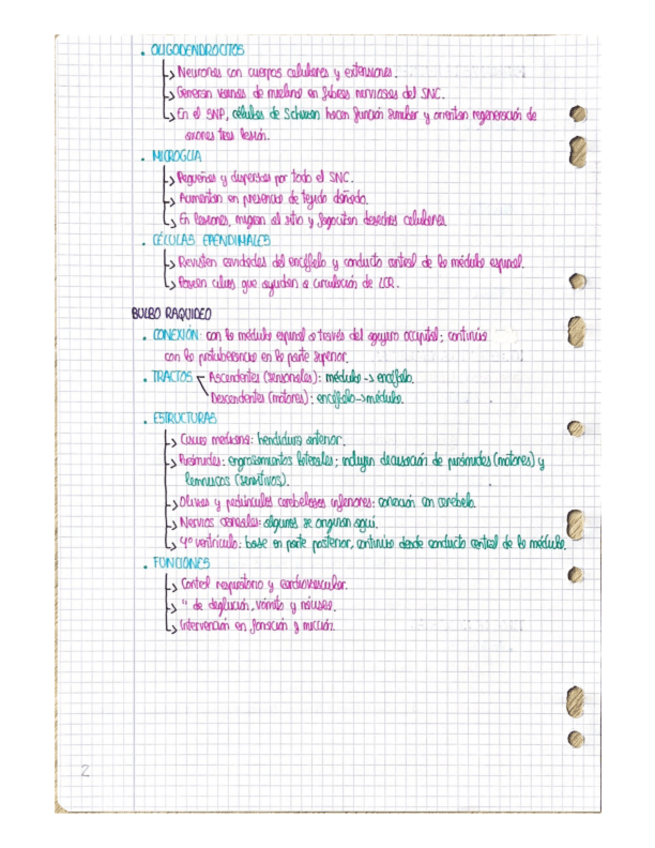 • OLIGODENDROCITOS
↳ Neuronas con cuerpos celulares y extensiones.
↳ Generan vainas de mielina en fibras nerviosas del SNC.
↳ En el SNP, células de Schwan hacen función similar y orientan regeneración de
axones tras lesión.
• MICROGLIA
↳ Pequeñas y dispersas por todo el SNC.
↳ Aumentan en presencia de tejido dañado.
↳ En lesiones, migran al sitio y fagocitan desechos celulares.
• CÉLULAS EPENDIMALES
↳ Revisten cavidades del encéfalo y conducto central de la médula espinal.
↳ Poseen cilios que ayudan a circulación de LCR.
BULBO RAQUIDEO
• CONEXIÓN: con la médula espinal a través del agujero occipital; continúa
con la protuberancia en la parte superior.
• TRACTOS Ascendentes (sensoriales): médula -> encéfalo.
Descendentes (motores): encéfalo->médula.
• ESTRUCTURAS
↳ Cisura mediana: hendidura anterior.
↳ Pirámides: engrosamientos laterales; incluyen decusación de pirámides (motores) y
lemniscos (sensitivos).
↳ Olivas y pedúnculos cerebelosos inferiores: conexión con cerebelo.
↳ Nervios craneales: algunos se originan aquí.
↳ 4º ventrículo: base en parte posterior, continúa desde conducto central de la médula.
• FUNCIONES
↳ Control respiratorio y cardiovascular.
↳ " de deglución, vómito y náuseas.
↳ Intervención en fonación y micción.
2